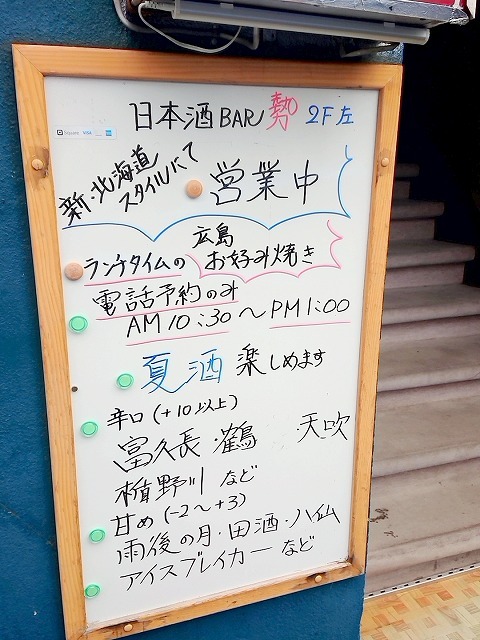 日本酒BAR 勢 2F左
Square VISA
新・北海道
スタイルにて
営業中
広島
ランチタイムの お好み焼き
電話予約のみ
AM10:30～PM1:00
夏酒 楽しめます
辛口(+10以上)
富久長・鶴 天吹
楯野川 など
甘め(-2～+3)
雨後の月・田酒・八仙
アイスブレイカー など